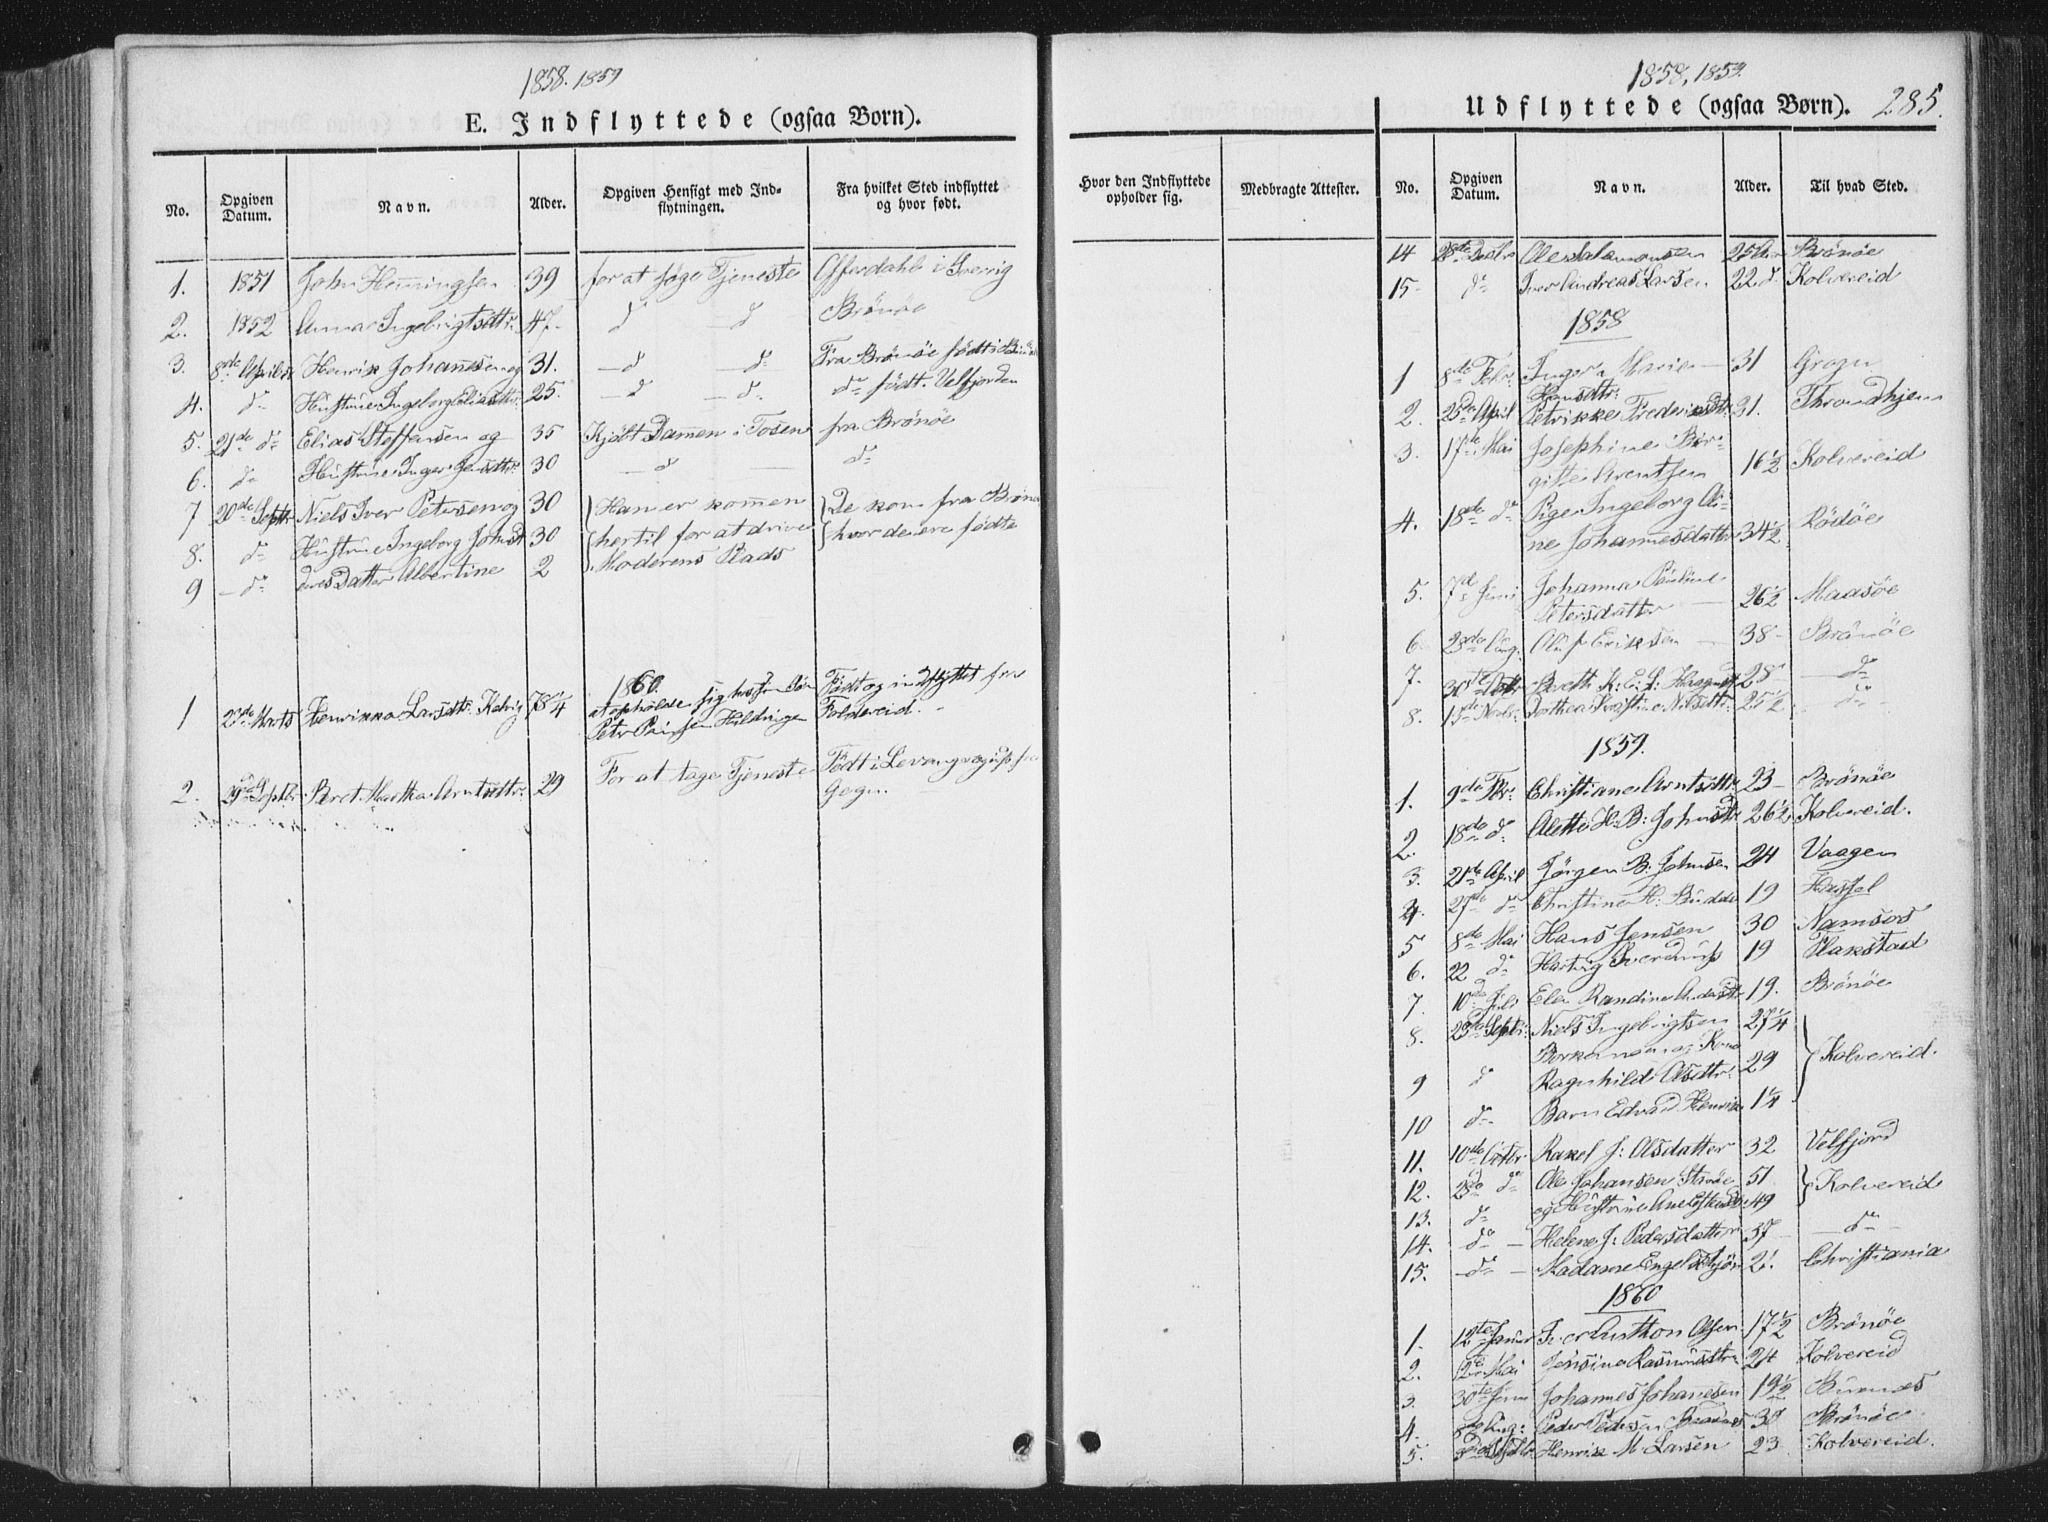 1858. 1859
E. Indflyttede (ogsaa Børn).
No. Opgiven Datum. Navn. Alder. Opgiven Hensigt med Indflytningen. Fra hvilket Sted indflyttet og hvor født.
1. 1851 John Henningsen 39 for at søge Tjeneste Offerdahl i Sverrig
2. 1852 Anna Ingebrigtsdttr. 47- d d Brönöe
3. 8de April Henrik Johannsen og 31. - d d- Fra Brönöe født i
4. d- Hustrue Ingeborg Eliasdttr. 25. - d - d- do født Velfjorden
5. 21de d- Elias Steffensen og 35 Kjöbt Dammen i Tosen fra Brönöe
6. d- Hustrue Inger Jensdttr 30 - d do
7 20de Septbr Niels Iver Petersen og 30 Han er kommen De kom fra Brönöe
8. d- Hustrue Ingeborg Johnsd 30 hertil for at drive hvor de ere fødte
9 - d- deres Datter Albertine 2 Moderens Plads
1860.
1 23de Marts Henrikka Larsdtr. 78 1/4 at opholde sig hos Sön Født og indflyttet fra
Peter Foldereid. -
2. 29de Septbr. Beret Martha Arntsdttr. 29 For at tage Tjeneste Født i Levanger
1858, 1859.
Udflyttede (ogsaa Børn). 285.
Hvor den Indflyttede opholder sig. Medbragte Attester. No. Opgiven Datum. Navn. Alder. Til hvad Sted.
14 28de Ole Salamonsen 25 Brönöe
15- d- Iver Andreas Larsen 22 d- Kolvereid
1858
1 8de Febr. Inger Marie 31 Grogn
Hansdttr.
2. 25de April Petrikke Fredriksdtr. 31. Throndhjem
3. 17de Mai Josephine Bir-
gitte Arentsen 16 1/2 Kolvereid
4. 18de d- Pige Ingeborg Ali-
ne Johannesdatter 34 1/2 Rödöe
5. 7de Juni Johanna Pauline
Petersdatter 26 1/2 Maasöe
6 23de Aug. Oluf Eriksen 38- Brönöe
7. 30te Octbr Bereth K: E: L: 28 - do
8. 13de Novbr. Dorthea Kristine Nilsdttr. 25 1/2 - do -
1859.
1. 9de Fbr: Christiane Arntsdttr 23- Brönöe
2. 18de d- Alette H: B: Johnsdtr 26 1/2 Kolvereid.
3. 21de April Jörgen B. Johnsen 24 Vaagen
4. 27de d- Christine H: Budde 19 Hassel
5 8de Mai Hans Jensen 30 Namsos
6. 22 d- Hartvig Sverdrup 19 Flakstad
7. 10de Juli Elen Randine Andersdtr 19. Brönöe
8. 23de Septbr. Niels Ingebrigtsen 27 1/4
og Kone
9 d Ragnhild Olsdttr. 29 Kolvereid.
10 d- Barn Edvard Henrik 1 1/4
11. 10de Octbr Rakel J: Olsdatter 32 Velfjord
12. 23de d- Ole Johansen 51 Kolvereid
13. d- og Hustrue Ane 49
14. d- - Helene J: Pedersdatter 37 - do -
15. - d- - Madame Engel 21. Christiania
1860
1. 12te Januar Iver Olsen 17 1/2 Brönöe
2. 12te Mai Jensine Rasmusdtr 24 Kolvereid
3. 30te Juni Johannes Johansen 19 1/2
4. Aug: Peder Pedersen 30 Brönöe
5. Henrik M Larsen 23 Kolvereid.